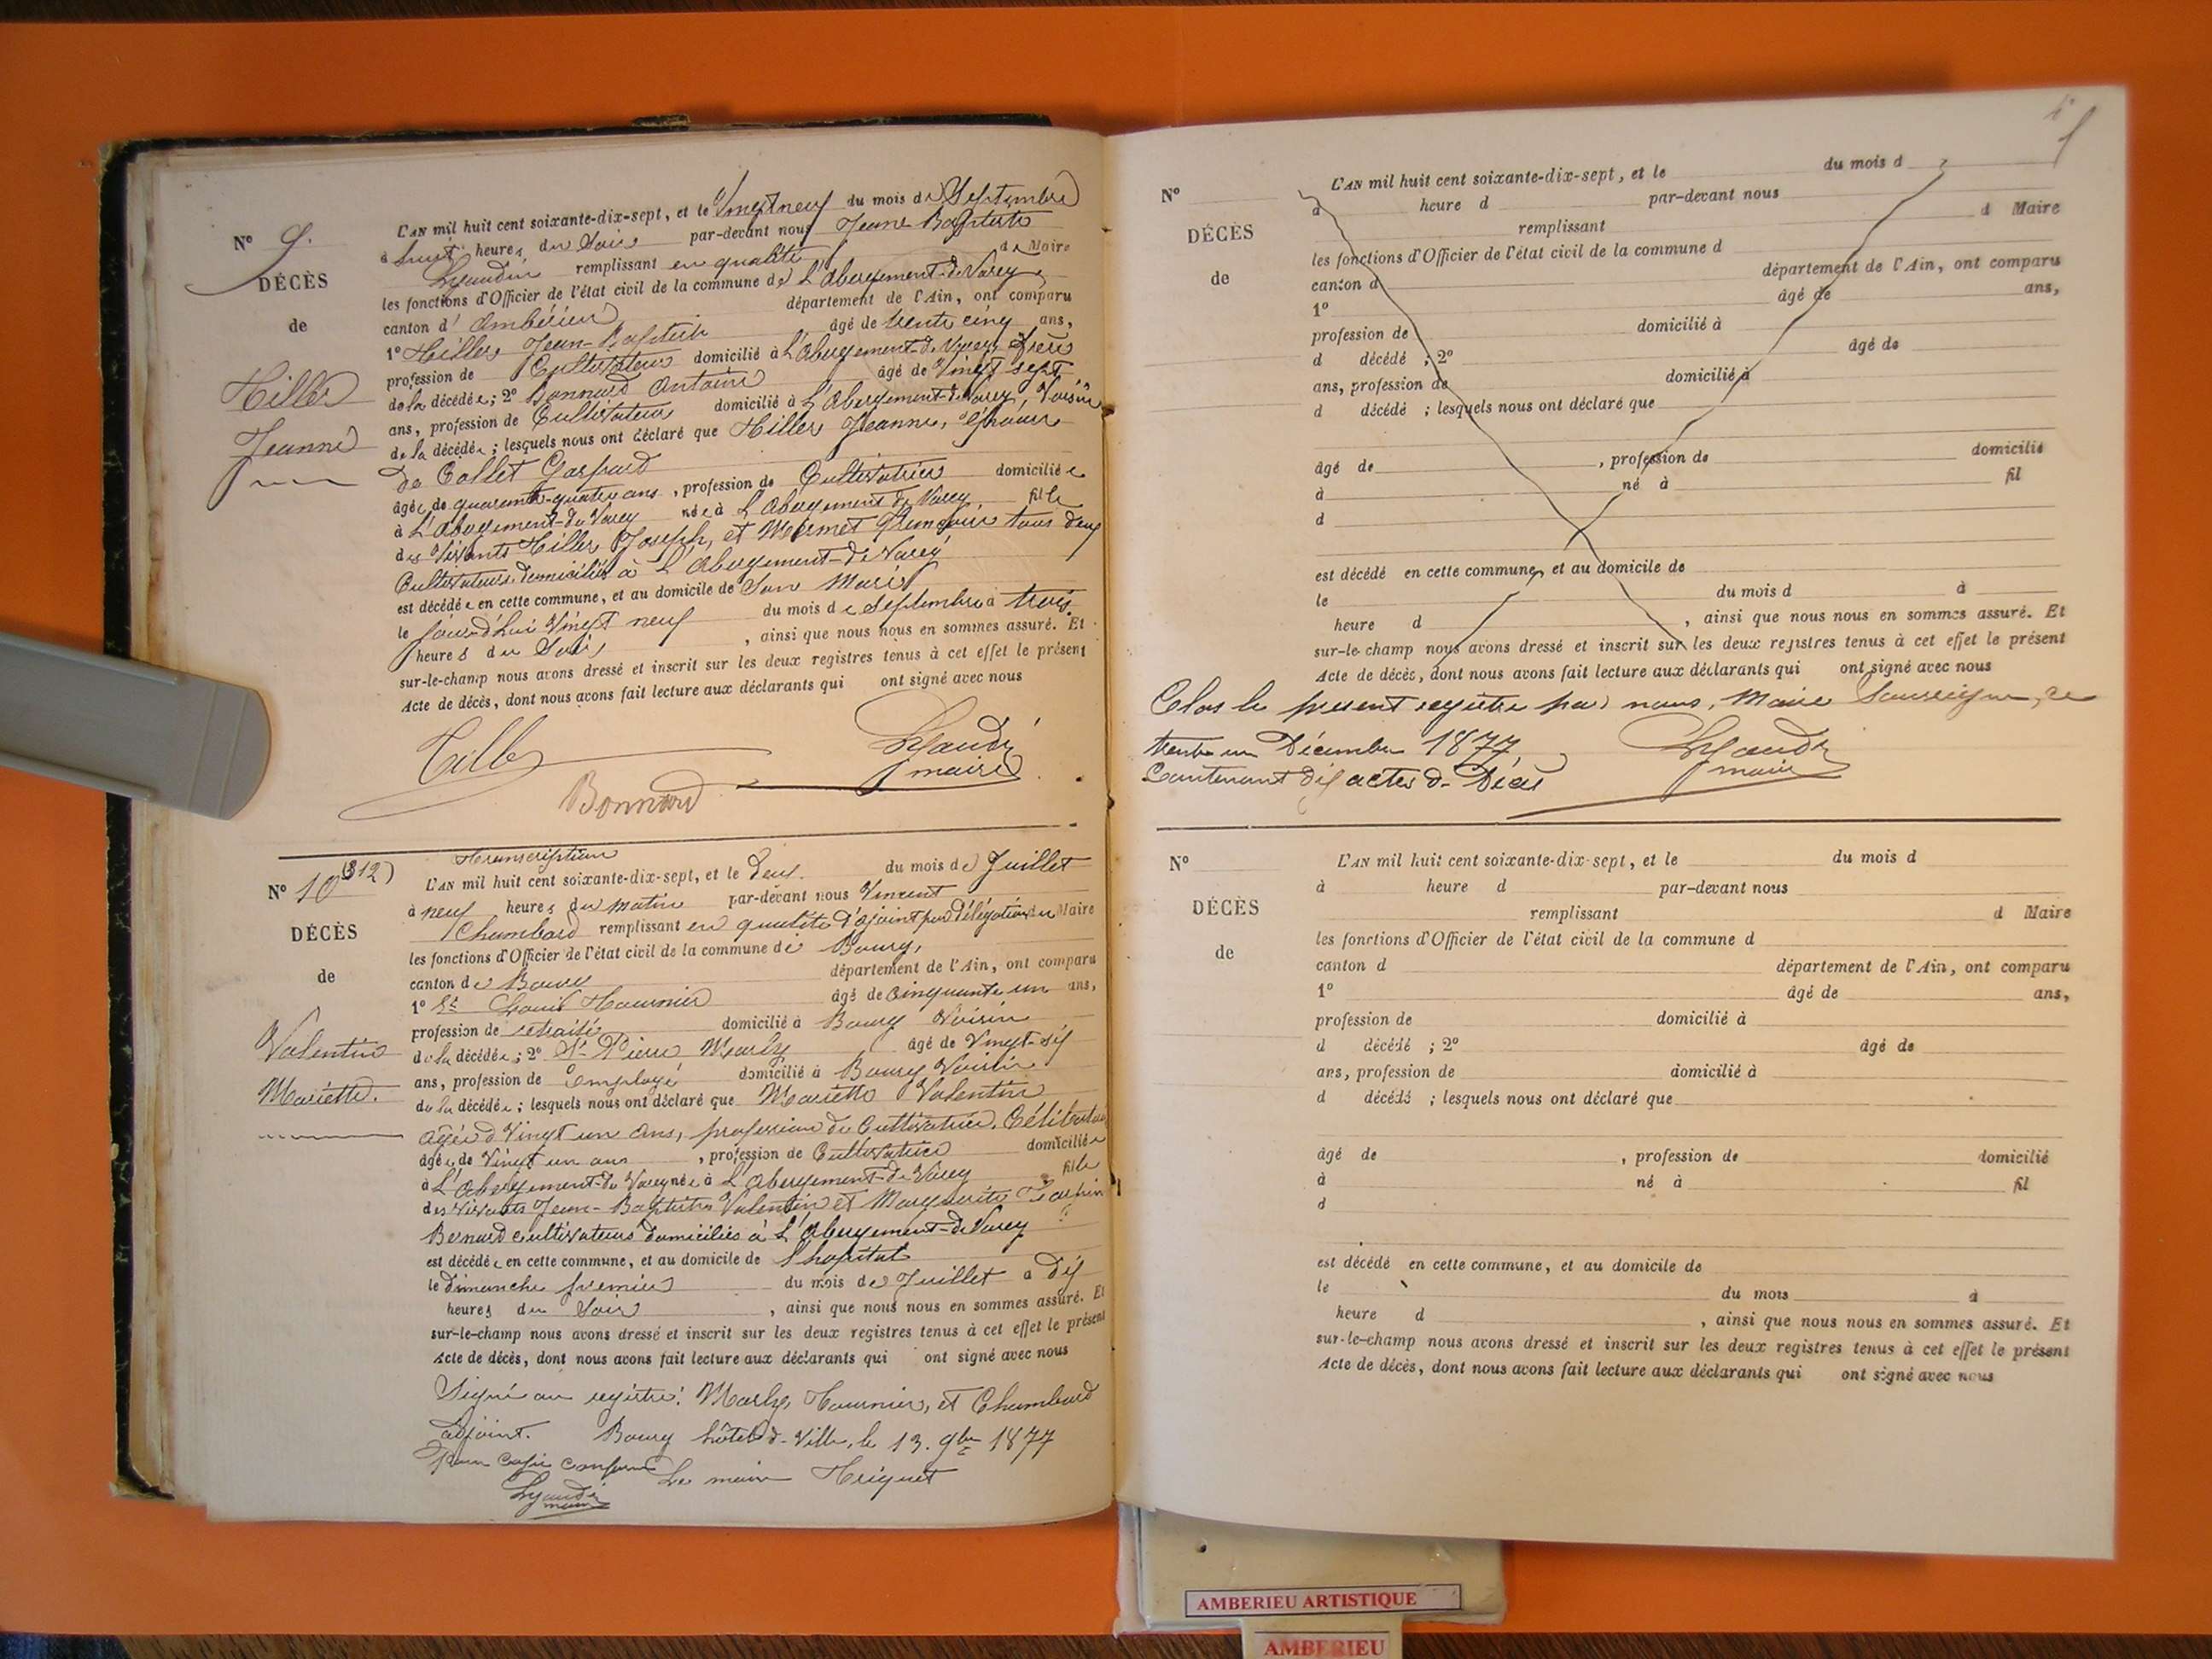 N° 9.
DÉCÈS
de
Hiller
Jeanne
L'AN mil huit cent soixante-dix-sept, et le Vingt neuf du mois de Septembre
à huit heures du Soir par-devant nous Jean Baptiste
Lyaudin remplissant en qualité de Maire
les fonctions d'Officier de l'état civil de la commune de L'Abergement-de-Varey
canton d'Ambérieu département de l'Ain, ont comparu
1° Hiller Jean-Baptiste âgé de trente cinq ans,
profession de Cultivateur domicilié à L'Abergement-de-Varey frère
de la décédée; 2° Bonnard Antoine âgé de Vingt sept
ans, profession de Cultivateur domicilié à L'Abergement-de-Varey, Voisin
de la décédée; lesquels nous ont déclaré que Hiller Jeanne, épouse
de Collet Gaspard
âgée de quarante-quatre ans, profession de Cultivatrice domiciliée
à L'Abergement-de-Varey née à L'Abergement de Varey fille
des Vivants Hiller Joseph, et Mermet tous deux
Cultivateurs domiciliés à L'Abergement-de-Varey
est décédée en cette commune, et au domicile de Son Mari
le jourd'hui Vingt neuf du mois de Septembre à trois
heures du Soir, ainsi que nous nous en sommes assuré. Et
sur-le-champ nous avons dressé et inscrit sur les deux registres tenus à cet effet le présent
Acte de décès, dont nous avons fait lecture aux déclarants qui ont signé avec nous
Hiller
Lyaudin
maire
Bonnard
N° 10 (312)
DÉCÈS
de
Valentin
Mariette.
Transcription
L'AN mil huit cent soixante-dix-sept, et le Deux du mois de Juillet
à neuf heures du matin par-devant nous Vincent
Chambard remplissant en qualité d'ajoint par Délégation du Maire
les fonctions d'Officier de l'état civil de la commune de Bourg,
canton de Bourg département de l'Ain, ont comparu
1° Sr Louis Tournier âgé de Cinquante un ans,
profession de retraité domicilié à Bourg Voisin
de la décédée; 2° Sr Pierre Marly âgé de Vingt-six
ans, profession de Employé domicilié à Bourg Voisin
de la décédée; lesquels nous ont déclaré que Mariette Valentin
âgée d Vingt un ans, profession de Cultivatrice, Célibataire
âgée de Vingt un ans, profession de Cultivatrice domiciliée
à L'Abergement-de-Varey née à L'Abergement-de-Varey fille
des vivants Jean-Baptiste Valentin et Marguerite
Bernard cultivateurs domiciliés à L'Abergement-de-Varey
est décédée en cette commune, et au domicile de l'hopital
le dimanche premier du mois de Juillet à dix
heures du Soir, ainsi que nous nous en sommes assuré. Et
sur-le-champ nous avons dressé et inscrit sur les deux registres tenus à cet effet le présent
Acte de décès, dont nous avons fait lecture aux déclarants qui ont signé avec nous
Signé au registre: Marly, Tournier, et Chambard
adjoint. Bourg hôtel-d-Ville, le 13. 9bre 1877
Pour copie conforme Le maire
Lyaudin
maire
N°
DÉCÈS
de
L'AN mil huit cent soixante-dix-sept, et le du mois d
à heure d par-devant nous
remplissant d Maire
les fonctions d'Officier de l'état civil de la commune d
canton d département de l'Ain, ont comparu
1° âgé de ans,
profession de domicilié à
d décédé ; 2° âgé de
ans, profession de domicilié à
d décédé ; lesquels nous ont déclaré que
âgé de , profession de domicilié
à né à fil
d
est décédé en cette commune, et au domicile de
le du mois d à
heure d , ainsi que nous nous en sommes assuré. Et
sur-le-champ nous avons dressé et inscrit sur les deux registres tenus à cet effet le présent
Acte de décès, dont nous avons fait lecture aux déclarants qui ont signé avec nous
Clos le présent registre par nous, Maire Soussigné, ce
trente un Décembre 1877,
Contenant dix actes d- Décès
Lyaudin
maire
N°
DÉCÈS
de
L'AN mil huit cent soixante-dix-sept, et le du mois d
à heure d par-devant nous
remplissant d Maire
les fonctions d'Officier de l'état civil de la commune d
canton d département de l'Ain, ont comparu
1° âgé de ans,
profession de domicilié à
d décédé ; 2° âgé de
ans, profession de domicilié à
d décédé ; lesquels nous ont déclaré que
âgé de , profession de domicilié
à né à fil
d
est décédé en cette commune, et au domicile de
le du mois à
heure d , ainsi que nous nous en sommes assuré. Et
sur-le-champ nous avons dressé et inscrit sur les deux registres tenus à cet effet le présent
Acte de décès, dont nous avons fait lecture aux déclarants qui ont signé avec nous
AMBERIEU ARTISTIQUE
AMBERIEU